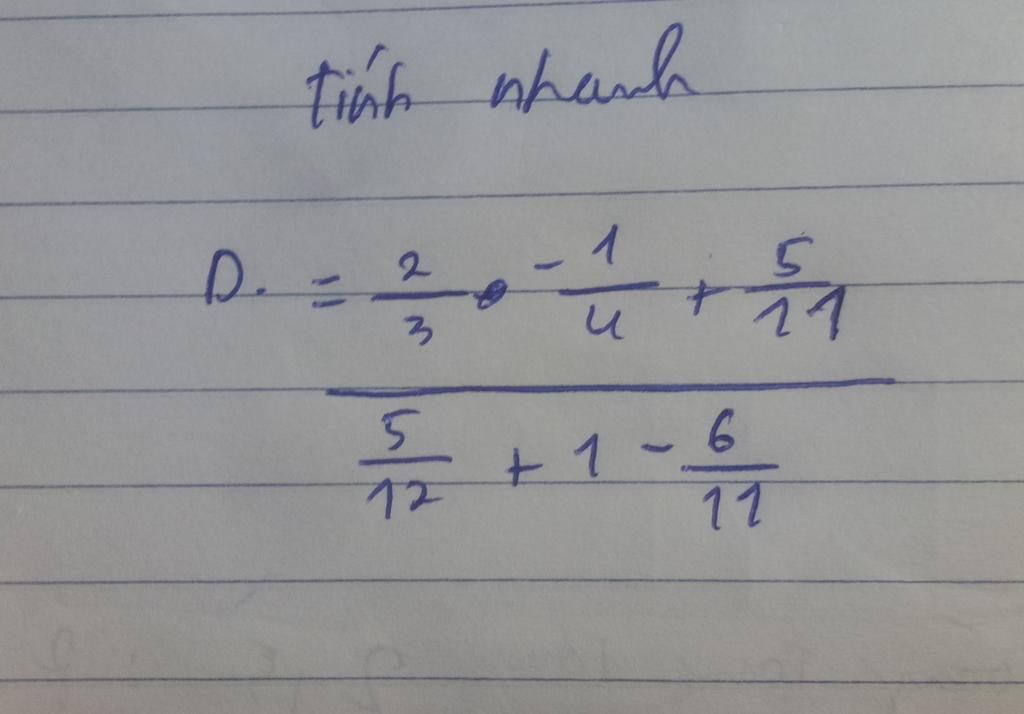 tính nhanh
D. = 2/3 • -1/4 + 5/11
5/12 + 1 - 6/11